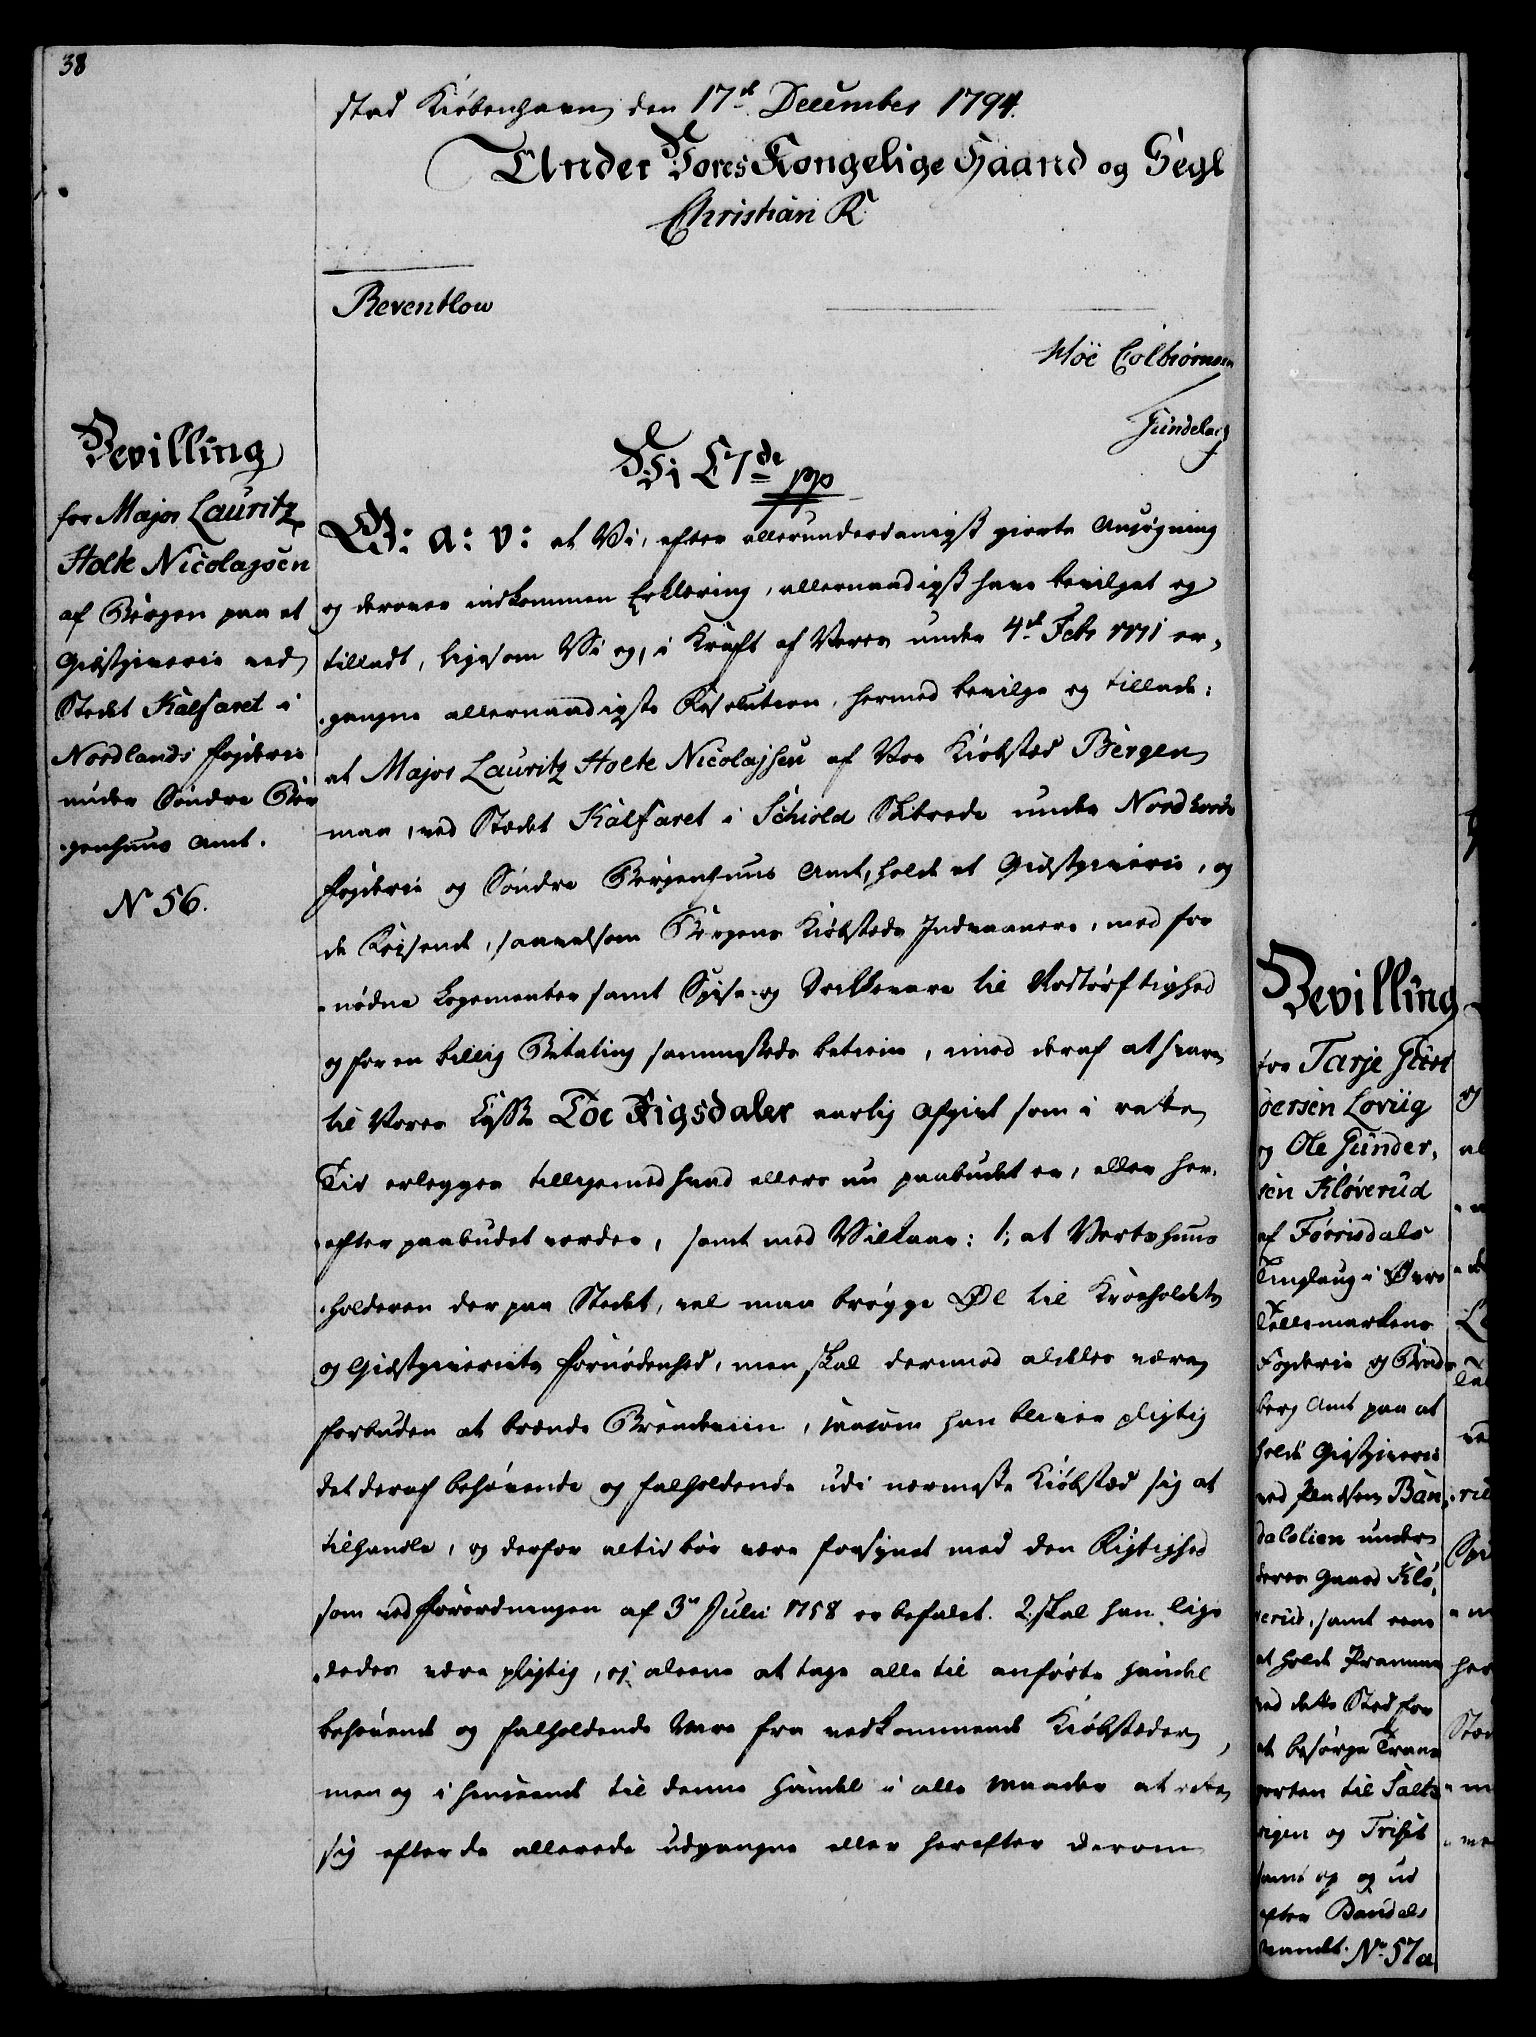 38
stad Kiöbenhavn den 17de December 1794.
Under Vores Kongelige Haand og Segl
Christian R
Reventlow
Moe Colbiørnsen
Gundelach
Bevilling
for Major Lauritz
Holte Nicolaysen
af Bergen paa et
Giestgiverie ved
Stedet Kalfaret i
Nordlands Fogderie
under Söndre Ber
genhuus Amt.
N 56.
Vi C7de pp
G: a: v: at Vi, efter allerunderdanigst giorte Ansøgning
og derover indkommen Erklering, allernaadigst have bevilget og
tilladt, ligesom Vi og, i Kraft af Vores under 4de Febr 1771 er„
gangne allernaadigste Resolution, hermed bevilge og tillade:
at Major Lauritz Holte Nicolajsen af Vor Kiöbstad Bergen
maa, ved Stedet Kalfaret i Schiold Skibrede under Nordhords
Fogderie og Söndre Bergenhuus Amt, holde et Giestgiverie, og
de Reisende, saavelsom Bergens Kiöbsteds Indvaanere, med for
„nödne Logementer samt Spise- og Drikkevare til Nödtörftighed
og for en billig Betaling sammesteds betiene, imod deraf at svare
til Vores Casse Toe Rigsdaler aarlig Afgivt som i rette
Tid erlegges tilligemed hvad ellers nu paabudet er, eller her„
efter paabudet vorder, samt med Vilkaar: 1; at Vertshuus
„holderen der paa Stedet, vel maa brögge Øl til Kroeholdets
og Giestgiveriets Fornödenhed, men skal dermed aldeles være
forbuden at brænde Brendeviin, saasom han bliver pligtig
det deraf behövende og falholdende udi nermeste Kiöbstæd sig at
tilhandle, og derfor altid bör være forsynet med den Rigtighed
som ved Forordningen af 3die Julii 1758 er befalet. 2. skal han lige
„ledes være pligtig, ej aleene at tage alle til anförte Handel
behövende og falholdende Vare fra vedkommende Kiöbstæder,
men og i Henseende til denne Handel i alle Maader at rette
sig efter de allerede udgangne eller herefter derom
Bevilling
for Tarje Gun
dersen Loviig
og Ole Gunder,
sen Kloverud
af Førrisdals
Tinglaug i Øvre
Tellemarkens
Fogderie og Brads
berg Amt paa at
holde Giestgiverie
ved Pladsen Ban,
dalslien under
deres Gaard Klø,
verud, samt een
at holde Pramme
ved dette Sted for
at besørge Trans
porten til Salt
vigen og Triset
samt op og ud
efter Bandals
vandet. No 57a